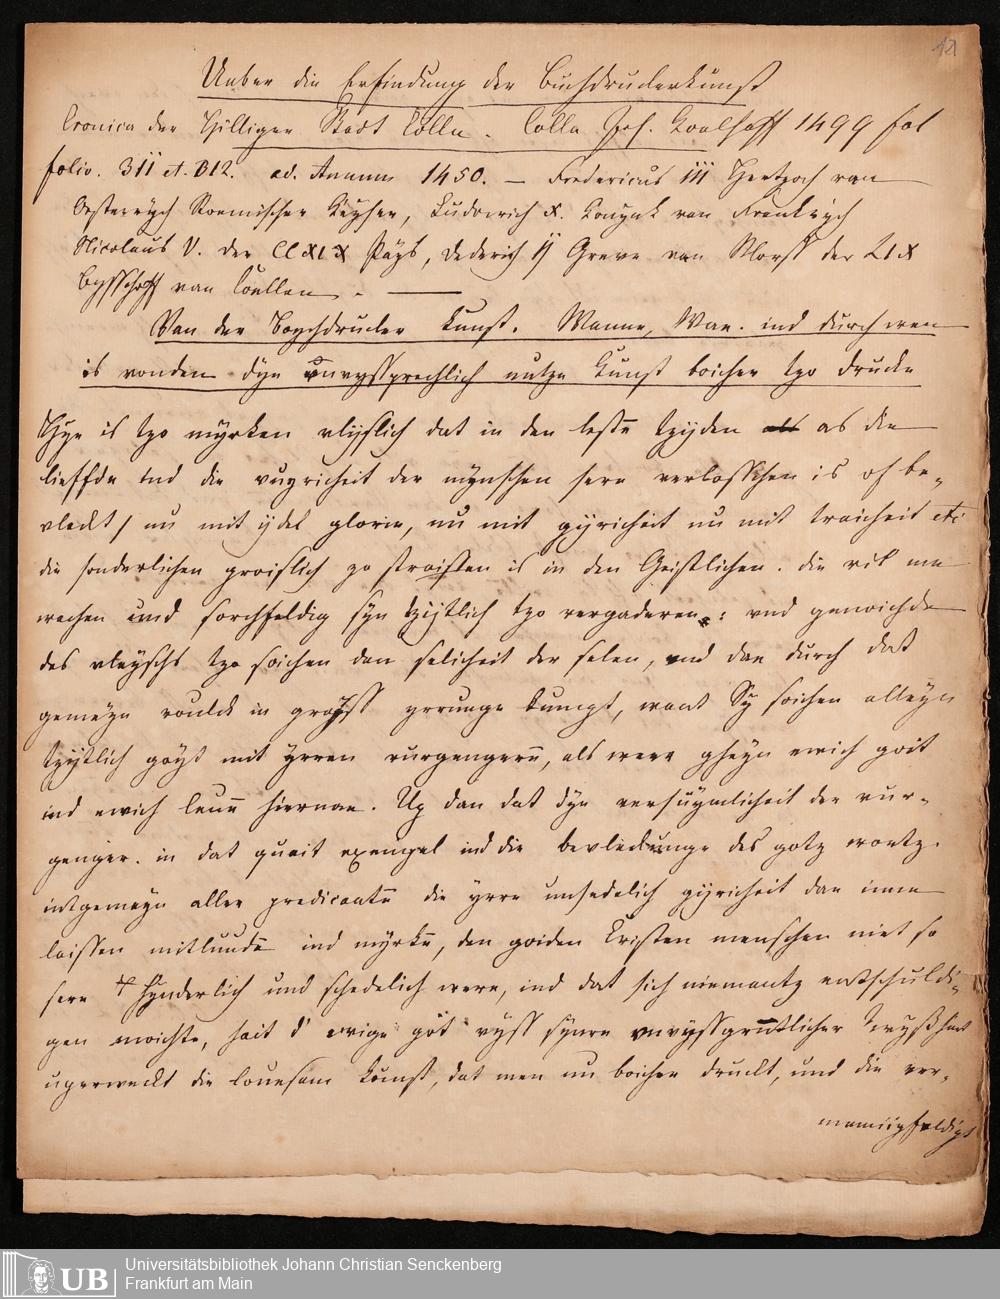 12
Ueber die Erfindung der Buchdruckerkunst
Cronica der Hilliger Stadt Cölln. Colln Joh. Koelhoff 1499 fol
folio. 311 et. 312. ad. Annum 1450. — Fredericus III Hertzoch van
Oesterrych Roemischer Keyser, Ludowich X. Konynk van Frankrych
Nicolaus V. der CCXIX Pays, Dederich II Greve van Morss der LIX
Bysschoff van Coellen. —
Van der Boychdrucker Kunst. Wanne, Wae. ind durch wen
is vonden dyn unvyssprechlich nutze Kunst boicher tzo drucke
Hye is tzo myrken vlyslich dat in den leste tzyden as die
lieffde ind die vuyricheit der mynschen sere verlosschen is of be-
vleckt / nu mit ydel glorie, nu mit gyricheit nu mit traicheit etc
die sonderlichen groislich zo straissen is in den Geistlichen. die vil me
wachen und sorchfeldig syn tzijtlich tzo vergaderen: vnd genoichde
des vleyschs tzo soichen dan selicheit der selen, vnd dae durch dat
gemeyn voulck in groyss yrrunge kumpt, want Sy soichen alleyn
tzijtlich goyt mit yrren vurgengern, als were gheyn ewich goit
ind ewich leue hiernae. Up dan dat dye versuymlicheit der vur-
genger. in dat quait exempel ind die bevleckunge des gotz wortz.
intgemeyn aller predicante die yrre unsedelich gyricheit dae inne
laissen mitlunde ind myrke, den goiden Kristen menschen niet so
sere hynderlich und schedelich were, ind dat sich niemantz entschuldi-
gen moichte, hait d' ewige got vyss synre vnvyssgruntlicher wyssheit
upgerweckt die louesam Kunst, dat men nu boicher druckt, und die ver-
mannigfeldigt
UB
Universitätsbibliothek Johann Christian Senckenberg
Frankfurt am Main